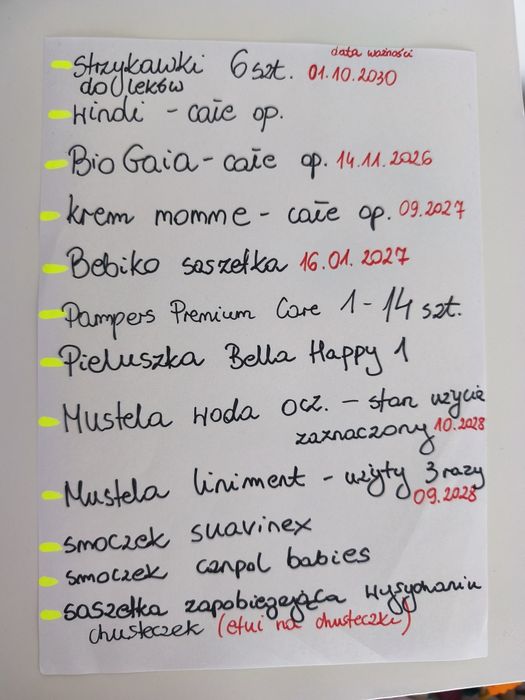 data ważności
Strzykawki 6szt. 01.10.2030
do leków
Windi - całe op.
Bio Gaia - całe op. 14.11.2026
krem momme - całe op. 09.2027
Bebiko saszetka 16.01.2027
Pampers Premium Care 1 - 14 szt.
Pieluszka Bella Happy 1
Mustela woda ocz. - stan użycia
zaznaczony 10.2028
Mustela liniment - użyty 3 razy
09.2028
smoczek suavinex
smoczek canpol babies
saszetka zapobiegająca wysychaniu
chusteczek (etui na chusteczki)